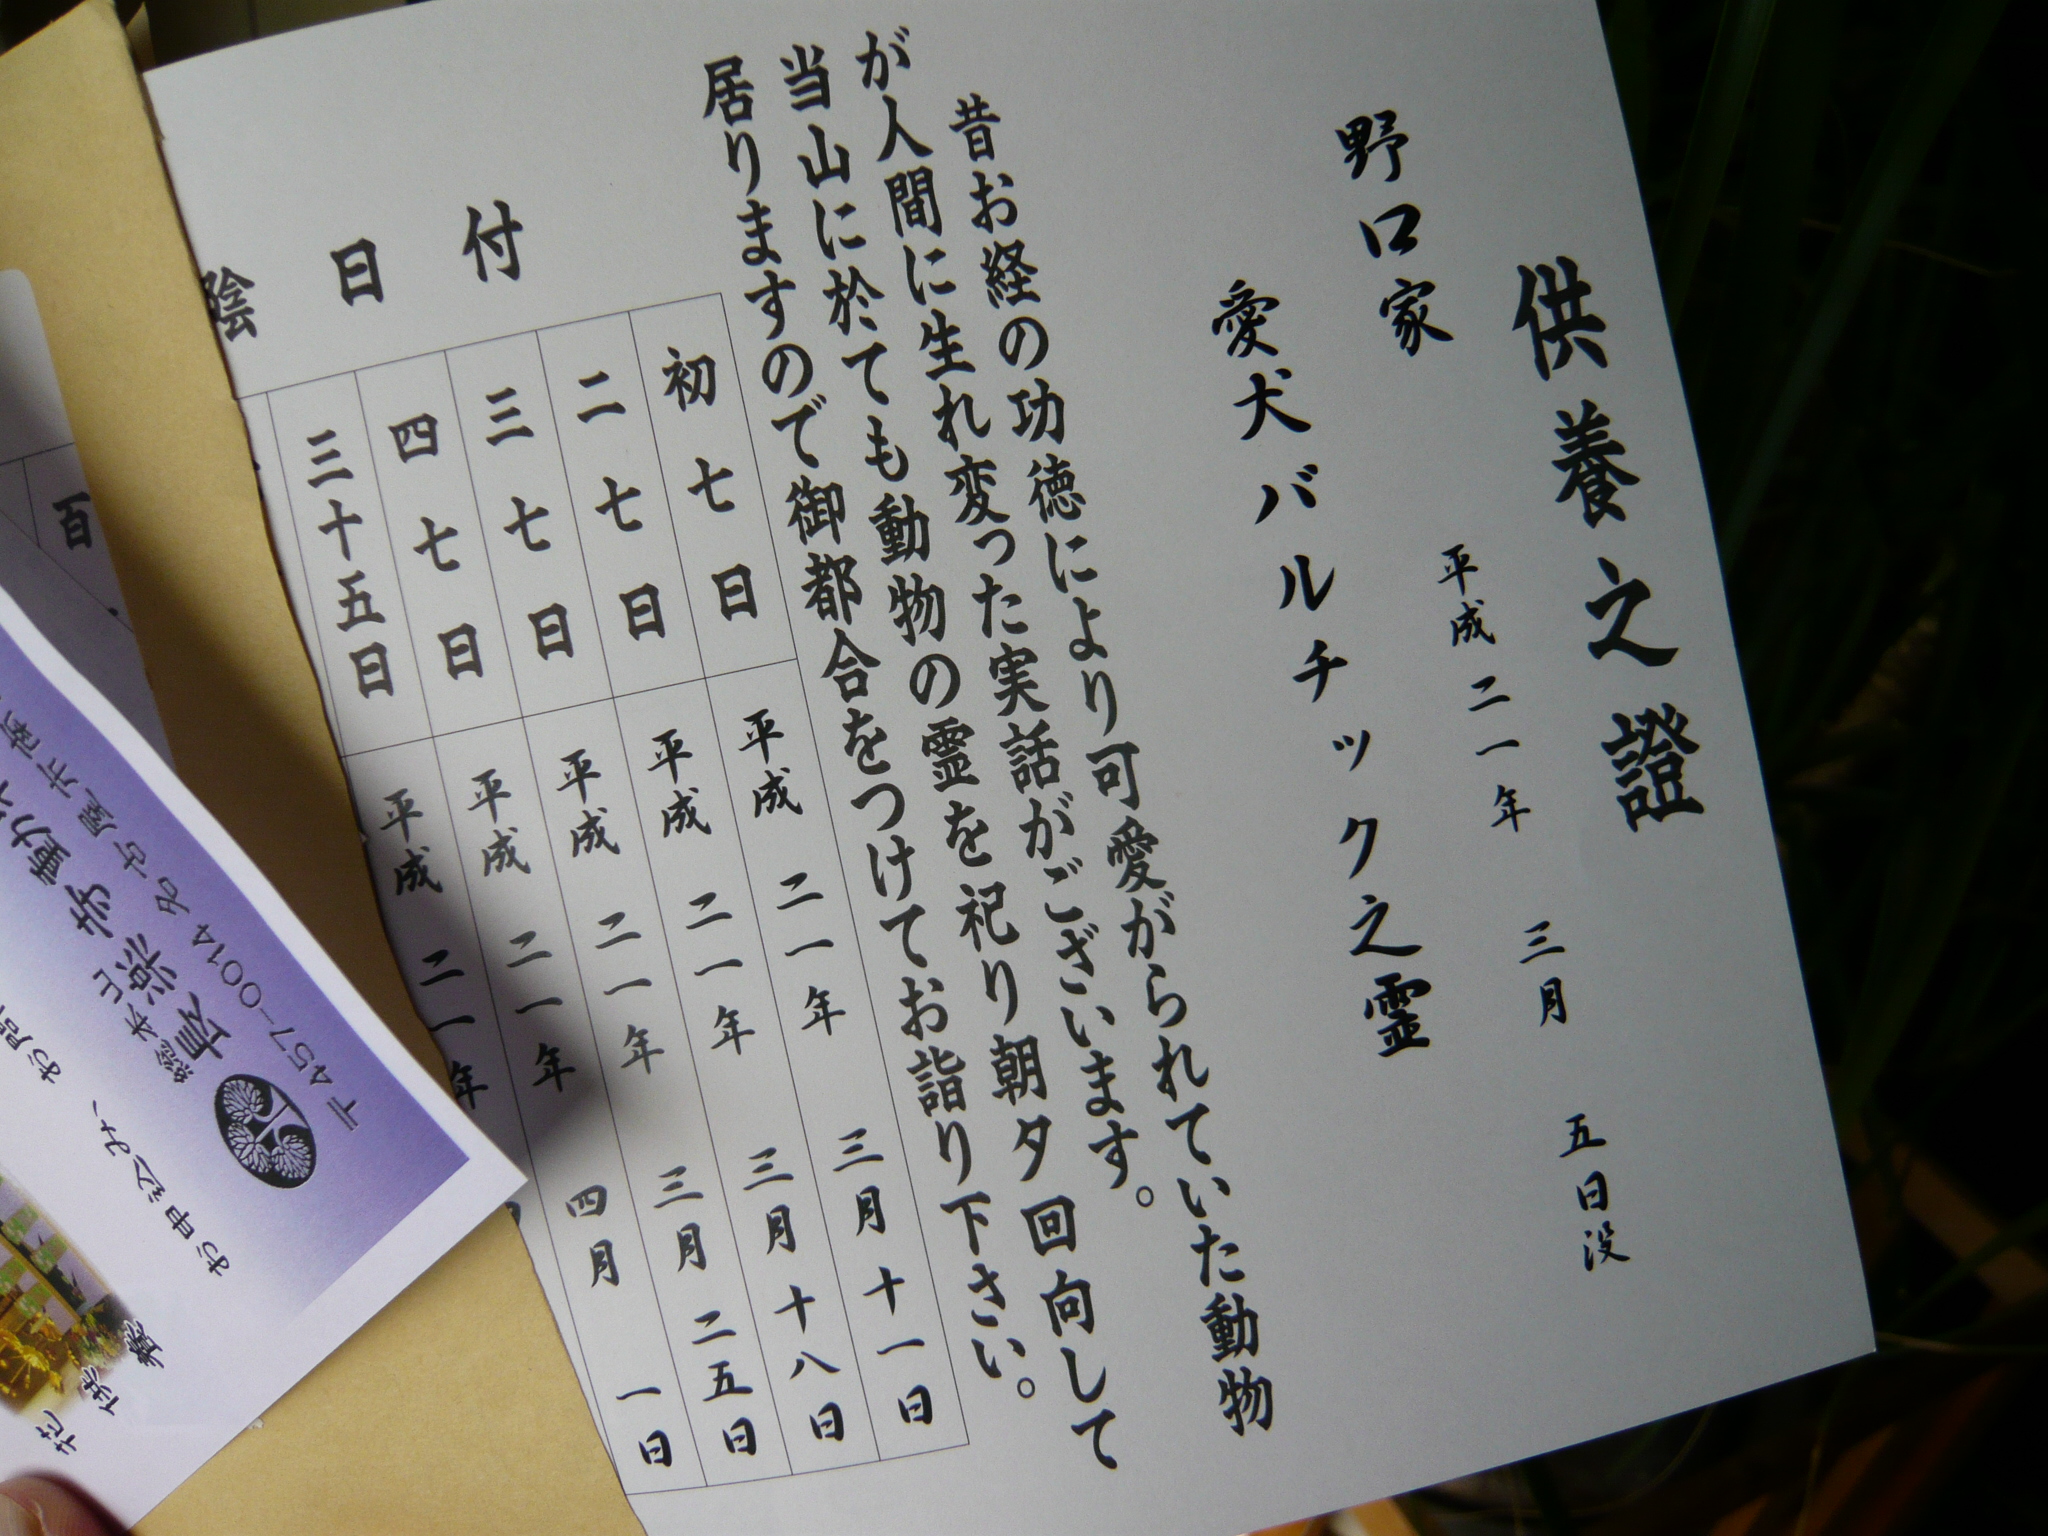 供養之證
平成二一年 三月 五日没
野口家
愛犬バルチック之霊
昔お経の功徳により可愛がられていた動物
が人間に生れ変った実話がございます。
当山に於ても動物の霊を祀り朝夕回向して
居りますので御都合をつけてお詣り下さい。
付
日
陰
初七日 平成二一年 三月十一日
二七日 平成二一年 三月十八日
三七日 平成二一年 三月二五日
四七日 平成二一年 四月 一日
三十五日 平成二一年
百
〒457-0014 名古屋市南
総本山
お申込み、
花供養